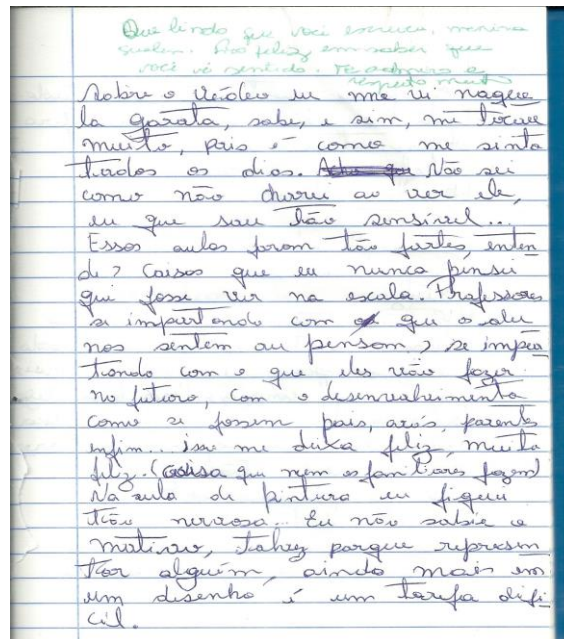 Que lindo que você escreveu, menina
querida. Fico feliz em saber que
você vê sentido. Te admiro e
respeito muito
Sobre o Vídeo eu me vi naque
la garota, sabe, e sim, me tocou
muito, pois é como me sinto
todos os dias. Não sei
como não chorei ao ver ele,
eu que sou tão sensível...
Essas aulas foram tão fortes, enten
de? Coisas que eu nunca pensei
que fosse ver na escola. Professores
se importando com que os alu
nos sentem ou pensam, se impor
tando com o que eles vão fazer
no futuro, com o desenvolvimento
como se fossem pais, avós, parentes
enfim. isso me deixa feliz, muito
feliz. (coisa que nem os familiares fazem)
Na aula de pintura eu fiquei
tão nervosa... Eu não sabia o
motivo, talvez porque represen
tar alguém, ainda mais em
um desenho é um tarefa difí
cil.